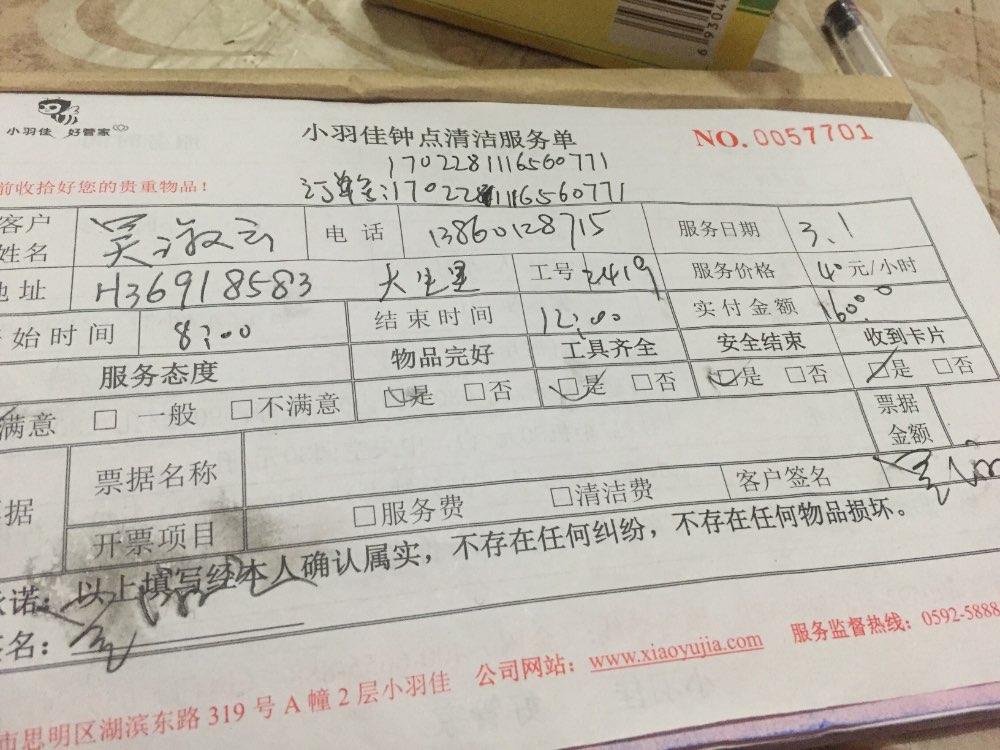 小羽佳 好管家
小羽佳钟点清洁服务单
NO.0057701
1702281116560771
前收拾好您的贵重物品！
订单号:1702281116560771
客户姓名 吴淑云 电话 13860128715 服务日期 3.1
地址 H36918583 大生里 工号 2419 服务价格 40元/小时
开始时间 8:00 结束时间 12:00 实付金额 160.00
服务态度 物品完好 工具齐全 安全结束 收到卡片
满意 □ 一般 □不满意 □是 □否 □是 □否 □是 □否 □是 □否
票据名称 票据金额
据 开票项目 □服务费 □清洁费 客户签名
承诺：以上填写经本人确认属实，不存在任何纠纷，不存在任何物品损坏。
签名：
市思明区湖滨东路 319 号 A 幢 2 层小羽佳 公司网站：www.xiaoyujia.com 服务监督热线：0592-5888